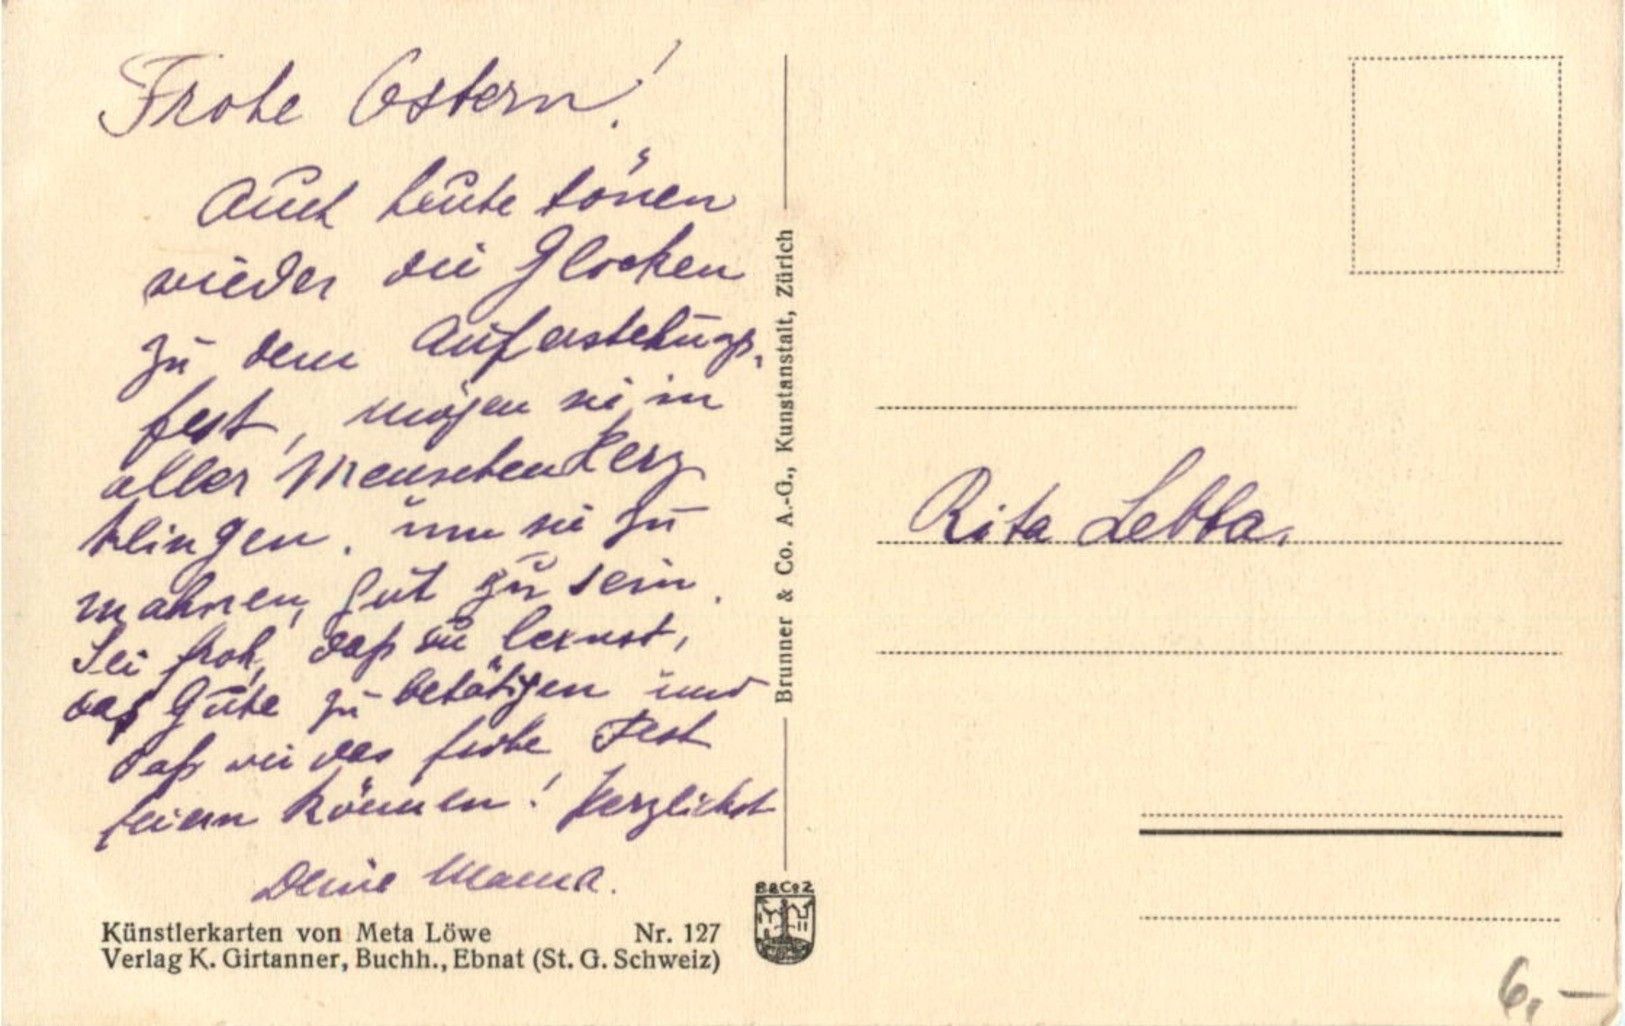 Frohe Ostern!
Auch heute tönen
wieder die Glocken
zu dem Auferstehungs-
fest, mögen sie in
aller Menschen Herz
klingen, um sie zu
mahnen, gut zu sein.
Sei froh, daß du lernst,
das Gute zu betätigen und
daß wir das frohe Fest
feiern können! Herzlichst
Deine Mama.
Künstlerkarten von Meta Löwe Nr. 127
Verlag K. Girtanner, Buchh., Ebnat (St. G. Schweiz)
Brunner & Co. A.-G., Kunstanstalt, Zürich
B&CoZ
Rita
6,–